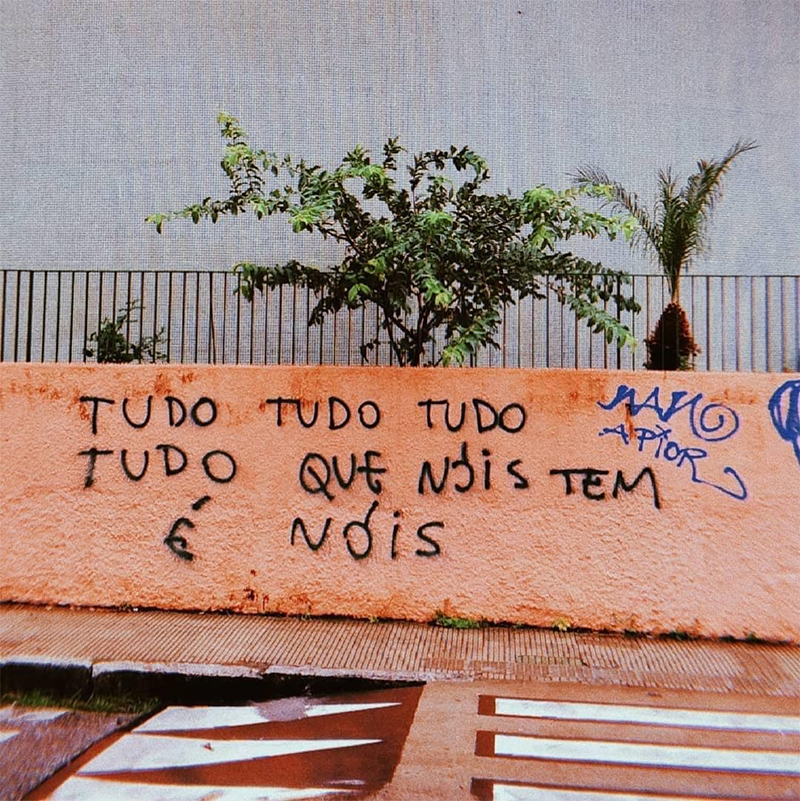 TUDO TUDO TUDO
TUDO QUE NÓIS TEM
É NÓIS
MANO
A PIOR